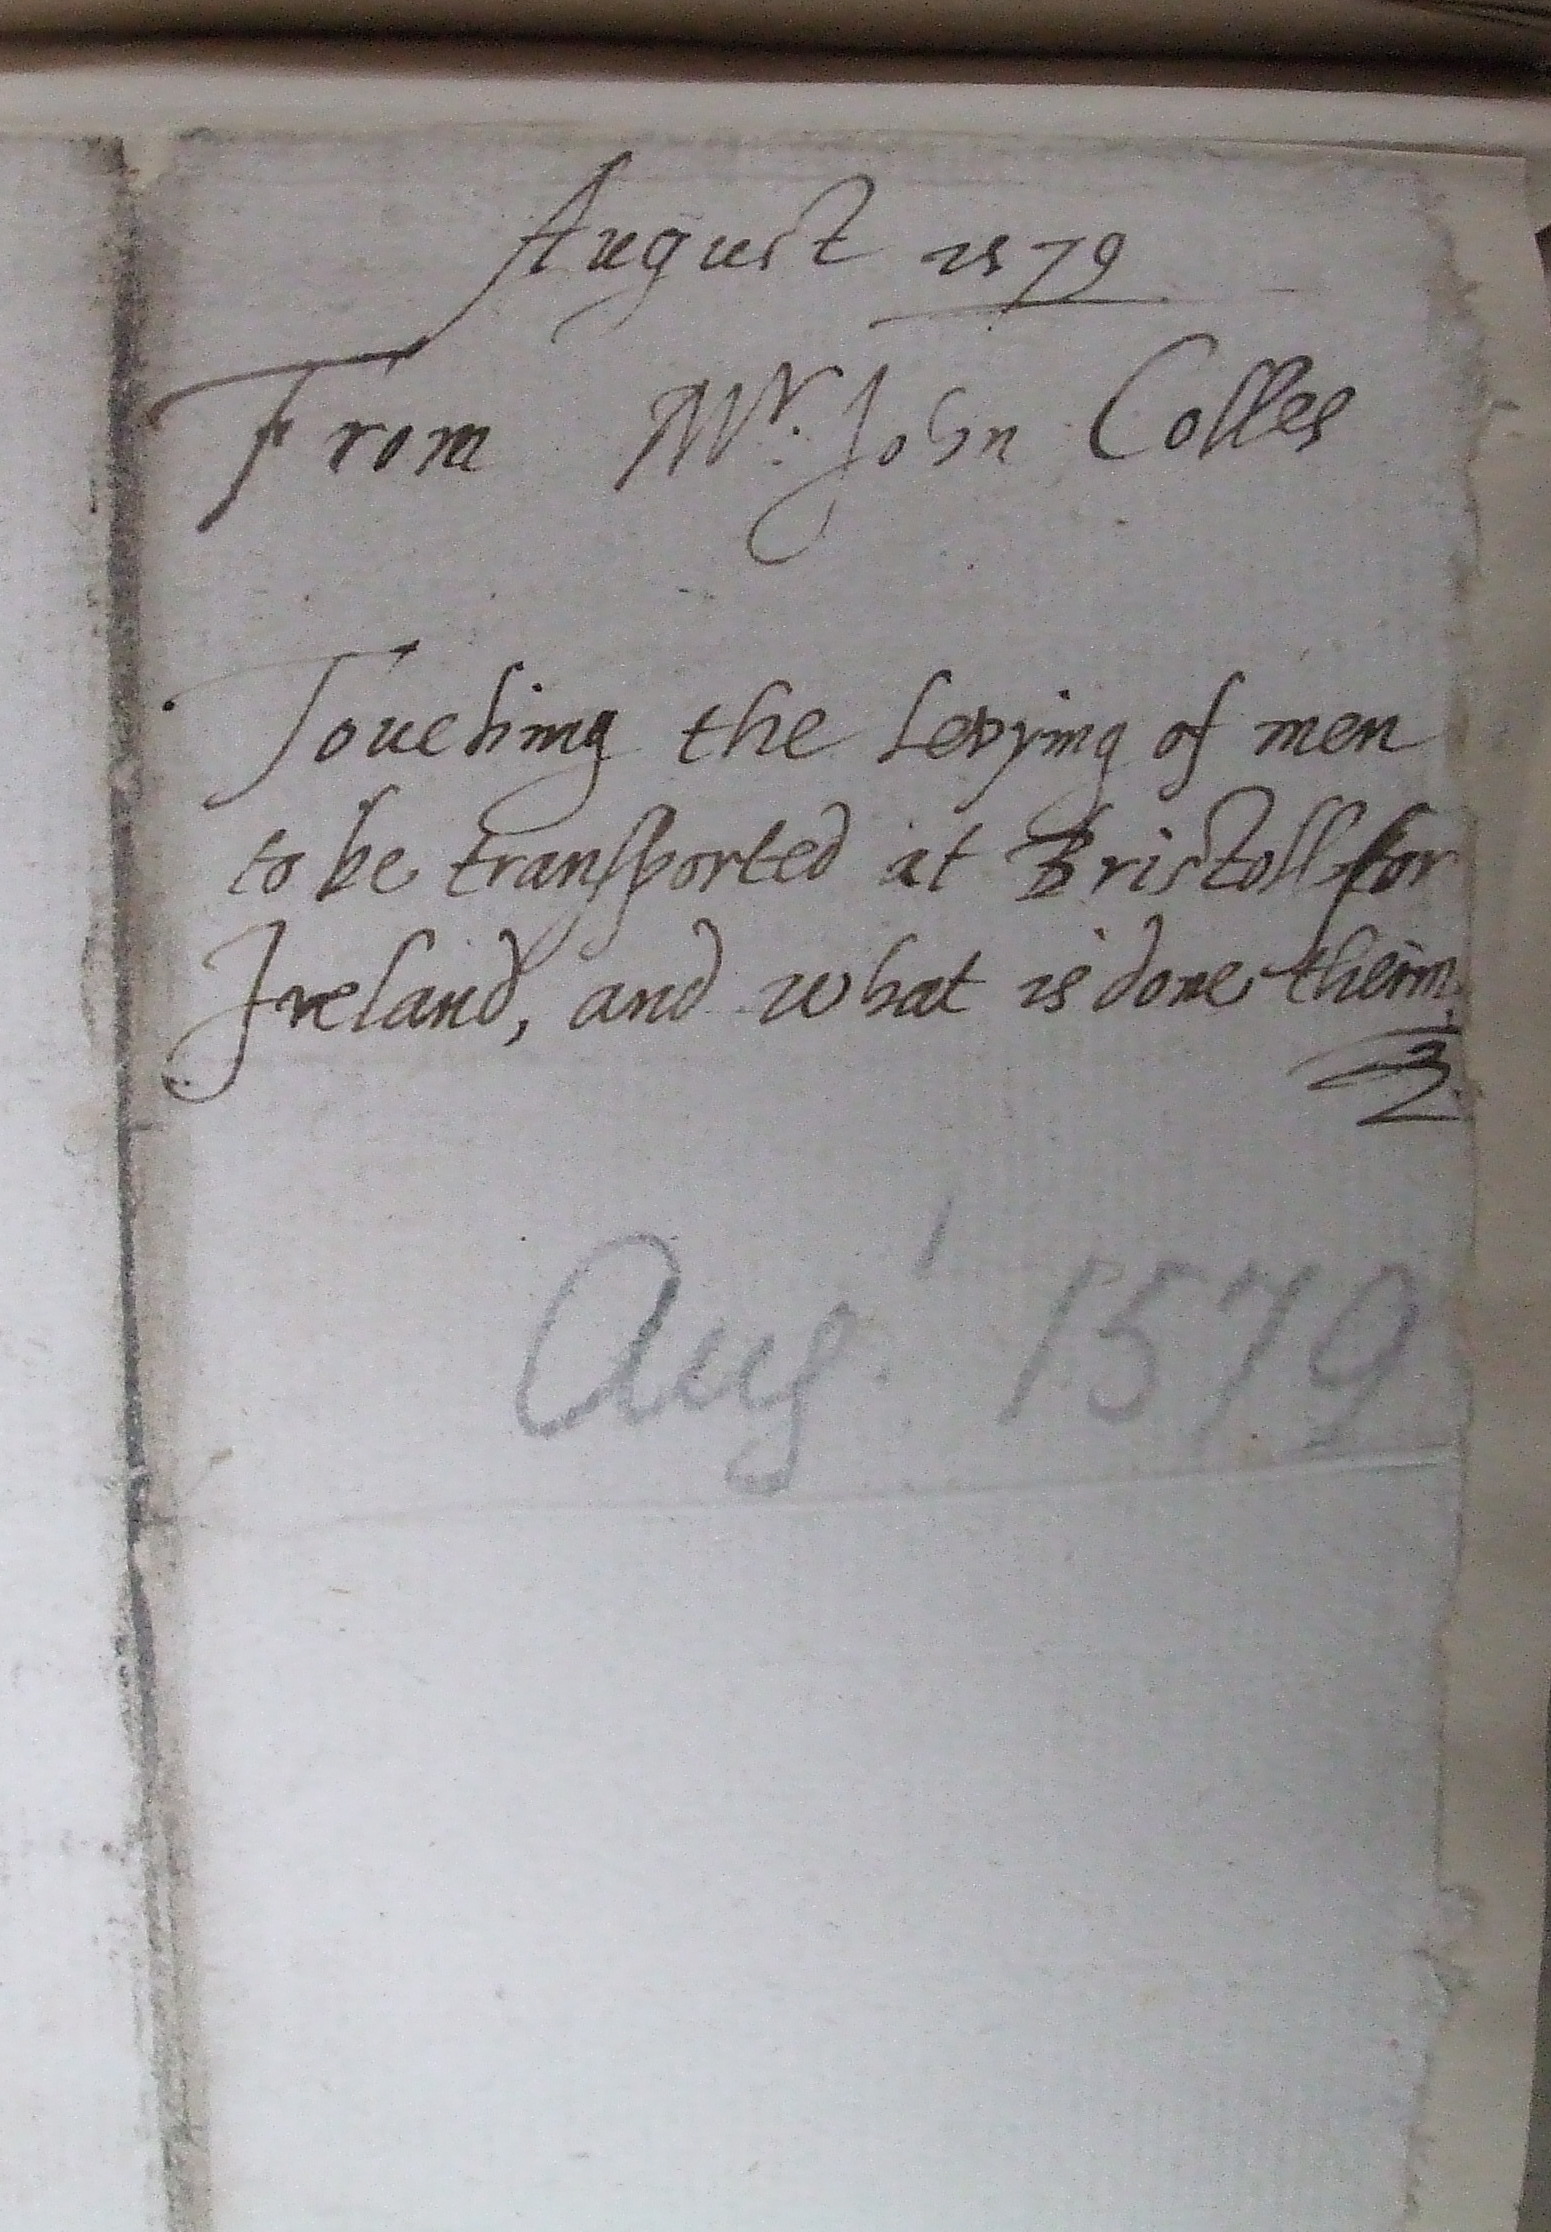 August 1579
From Mr. John Colles
Touching the Levying of men
to be transported at Bristoll for
Ireland, and what is done therin.
Aug. 1579